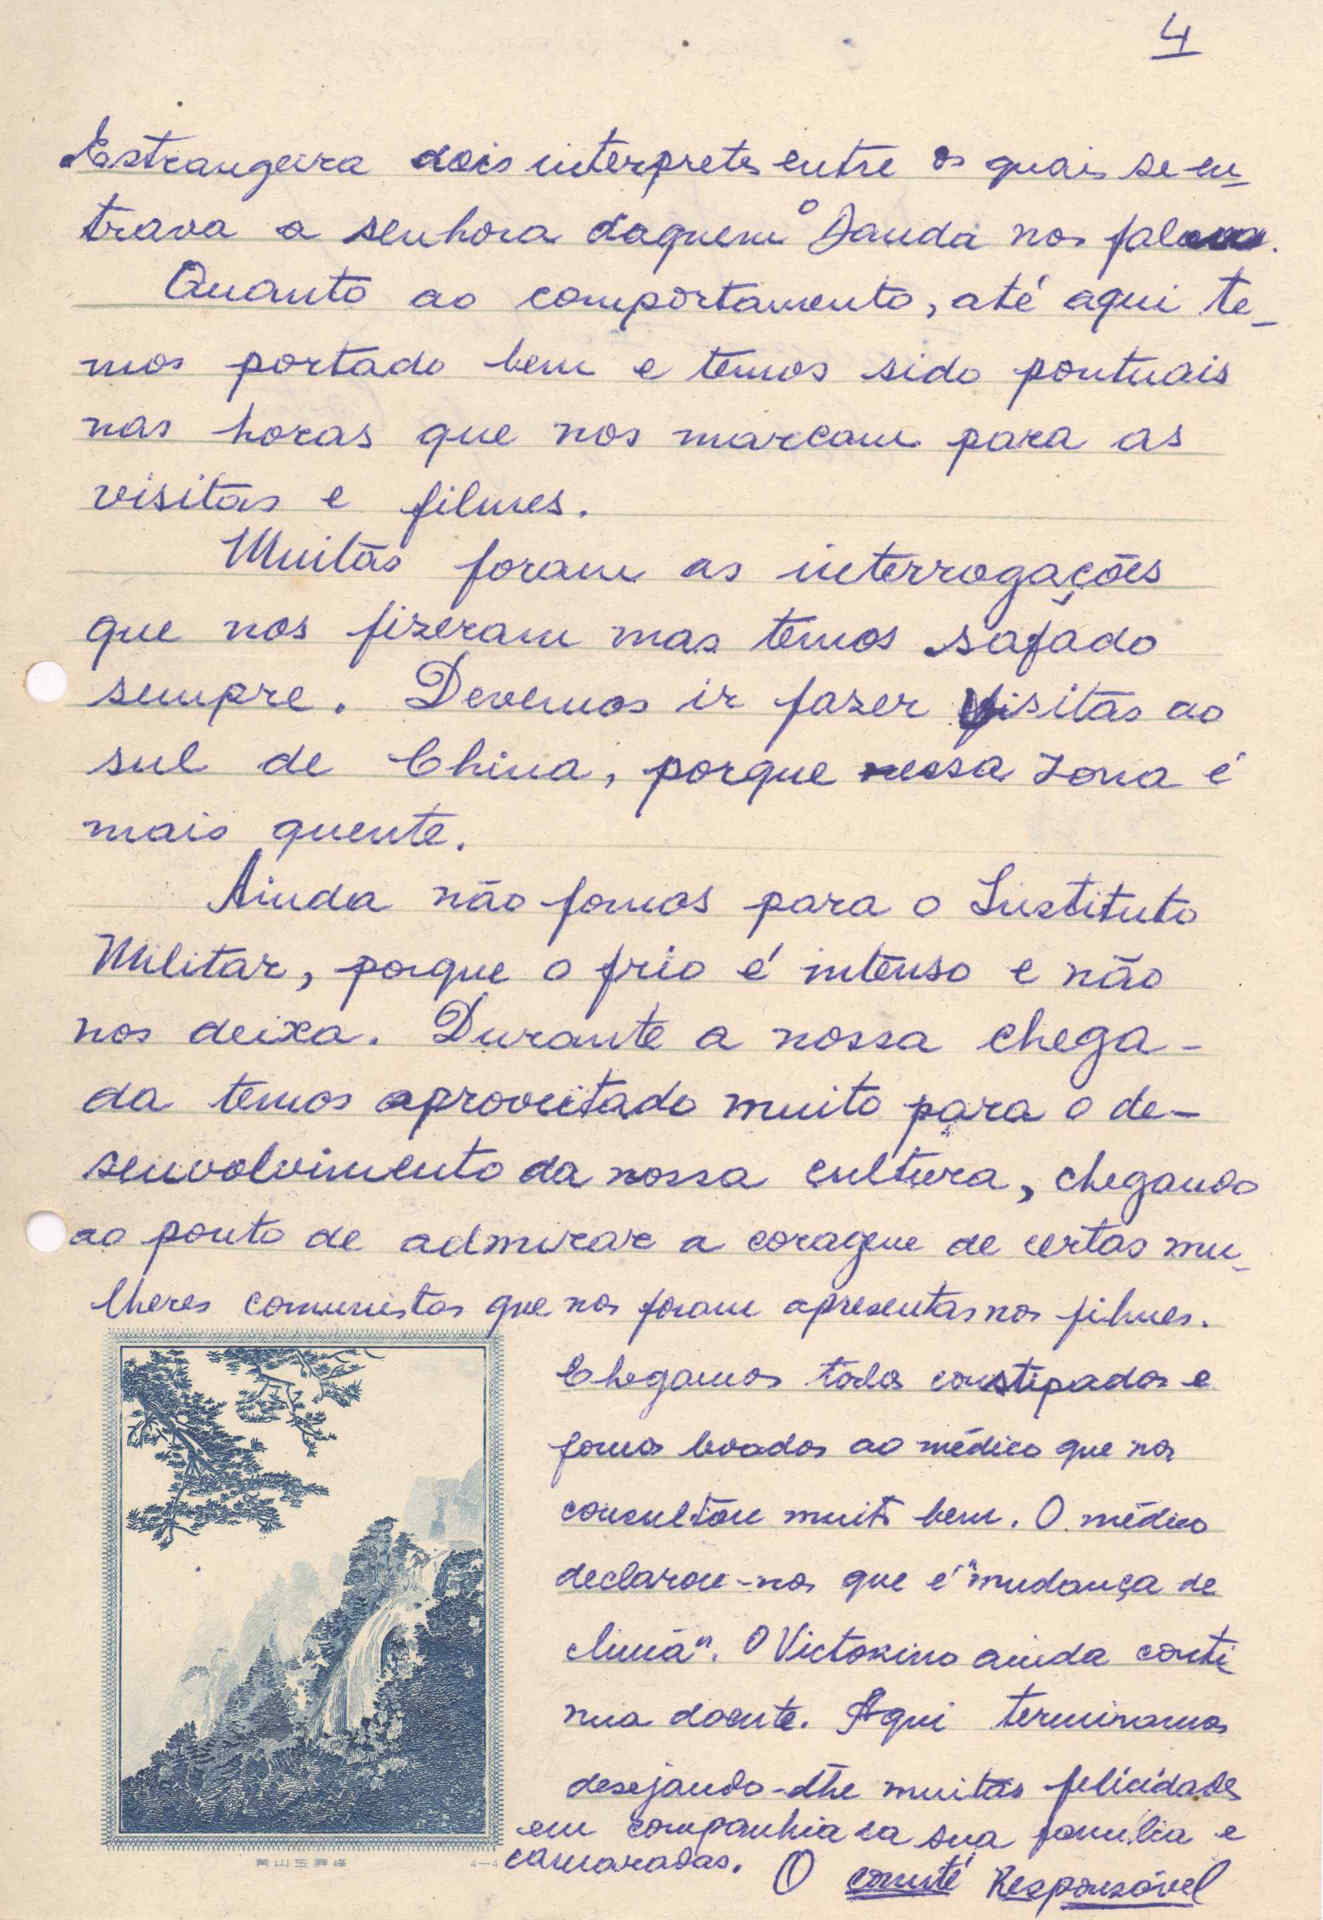 4
Estrangeira dois interpretes entre os quais se en-
trava a senhora daquem o Dauda nos falava.
Quanto ao comportamento, até aqui te-
mos portado bem e temos sido pontuais
nas horas que nos marcam para as
visitas e filmes.
Muitas foram as interrogações
que nos fizeram mas temos safado
sempre. Devemos ir fazer visitas ao
sul de China, porque nessa zona é
mais quente.
Ainda não fomos para o Instituto
Militar, porque o frio é intenso e não
nos deixa. Durante a nossa chega-
da temos aproveitado muito para o de-
senvolvimento da nossa cultura, chegando
ao ponto de admirar a coragem de certas mu-
lheres comunistas que nos foram apresentas nos filmes.
Chegamos todos constipados e
fomos levados ao médico que nos
consultou muito bem. O médico
declarou-nos que é "mudança de
clima". O Victorino ainda conti
nua doente. Aqui terminamos
desejando-lhe muitas felicidades
em companhia da sua família e
camaradas. O comité Responsável
黄山玉屏峰
4—4